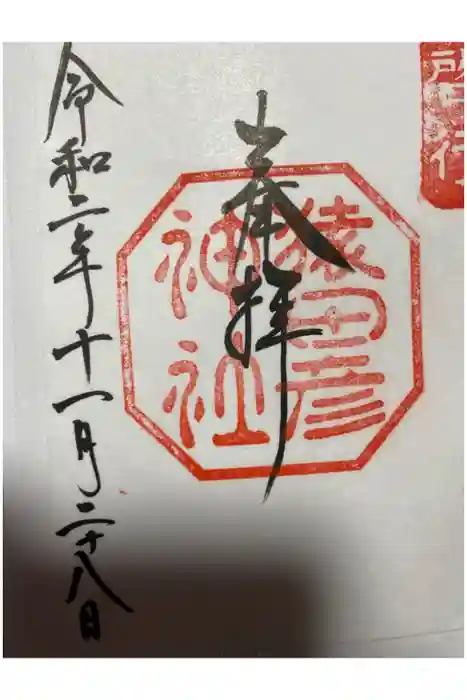 奉拝
猿田彦
神社
令和二年十一月二十八日